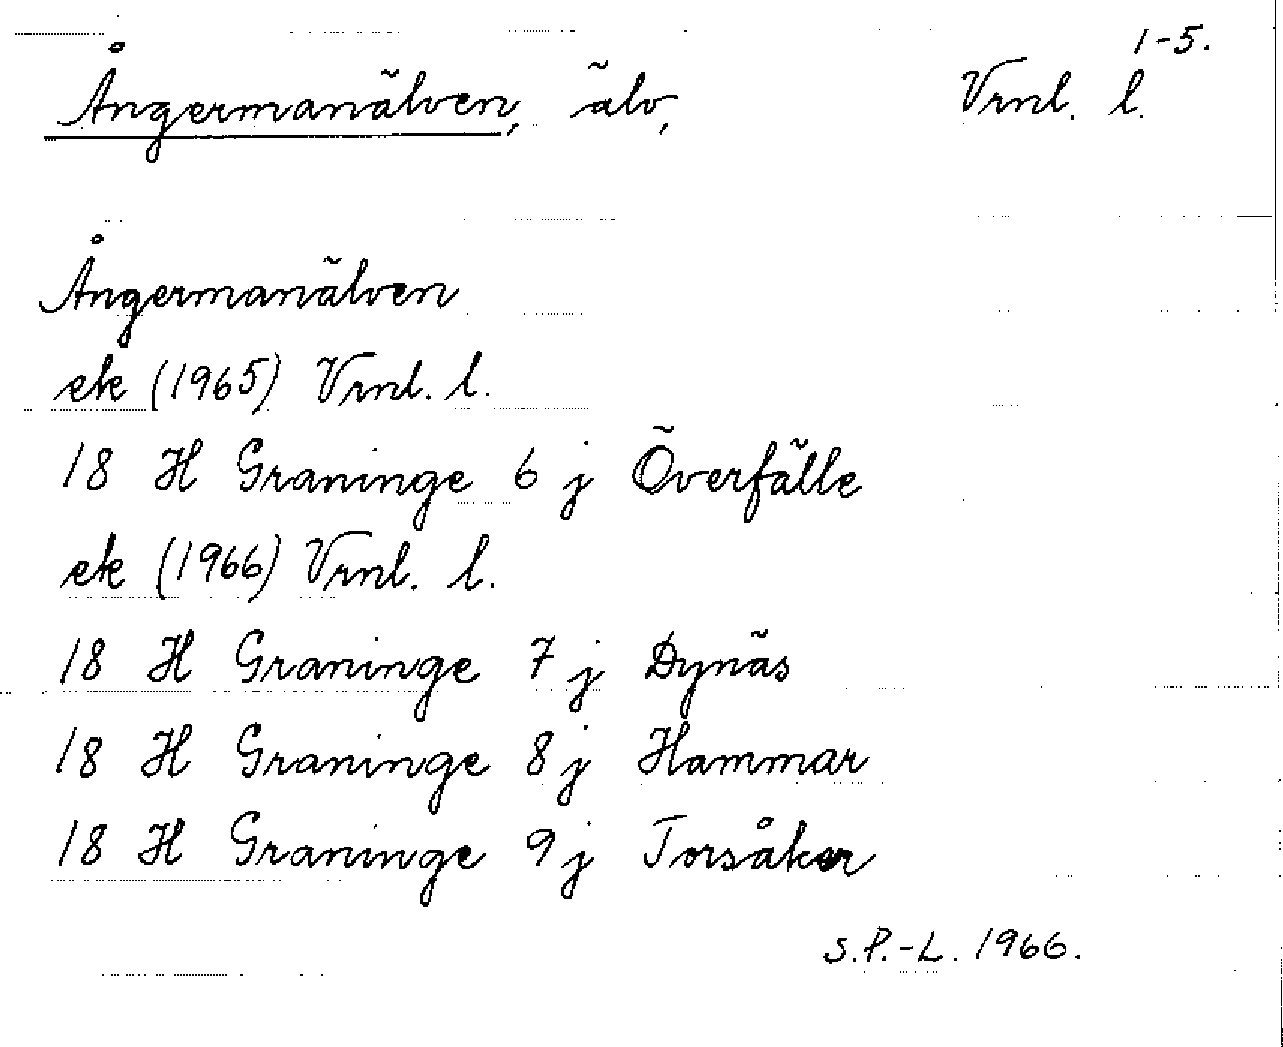 1-5.
Ångermanälven, älv, Vrnl. l.
Ångermanälven
ek (1965) Vrnl. l.
18 H Graninge 6 j Överfälle
ek (1966) Vrnl. l.
18 H Graninge 7 j Dynäs
18 H Graninge 8 j Hammar
18 H Graninge 9 j Torsåker
S.P.-L. 1966.